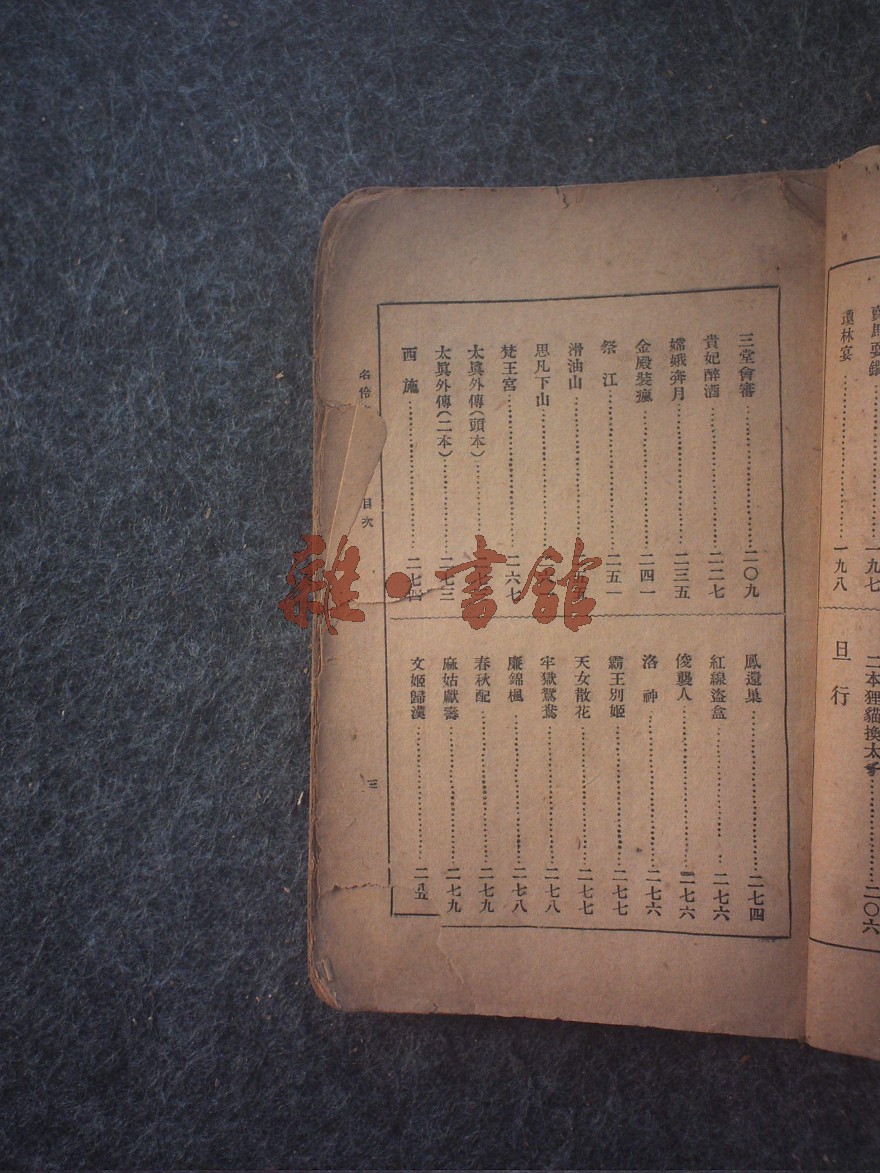 賣馬耍鐧……一九七
瓊林宴……一九八
二本狸貓換太子……二〇六
旦行
三堂會審……二〇九
貴妃醉酒……二二七
嫦娥奔月……二三五
金殿裝瘋……二四一
祭江……二五一
滑油山……二五五
思凡下山……二六
梵王宮……二六七
太眞外傳(頭本)……二七
太眞外傳(二本)……二七三
西施……二七四
鳳還巢……二七四
紅線盜盒……二七六
俊襲人……二七六
洛神……二七六
霸王別姬……二七七
天女散花……二七七
牢獄鴛鴦……二七八
廉錦楓……二七八
春秋配……二七九
麻姑獻壽……二七九
文姬歸漢……二八五
名伶
目次
三
雜·書館